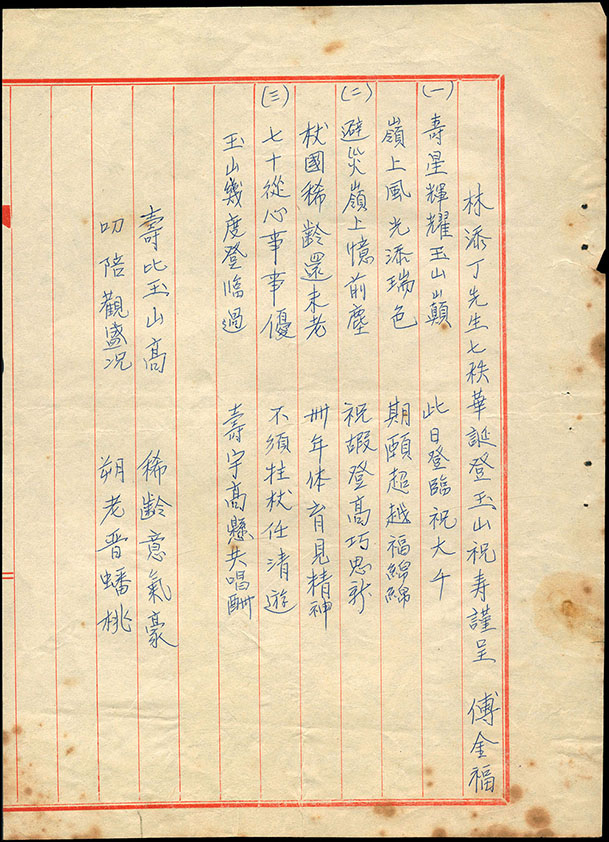 林添丁先生七秩華誕登玉山祝寿謹呈 傅金福
(一) 壽星輝耀玉山巔 此日登臨祝大年
嶺上風光添瑞色 期頤超越福綿綿
(二) 避災嶺上憶前塵 祝嘏登高巧思新
杖國稀齡還未老 卅年体育見精神
(三) 七十從心事事優 不須拄杖任清遊
玉山幾度登臨過 壽宇高懸共唱酬
壽比玉山高 稀齡意氣豪
叨陪觀盛况 朔老晋蟠桃